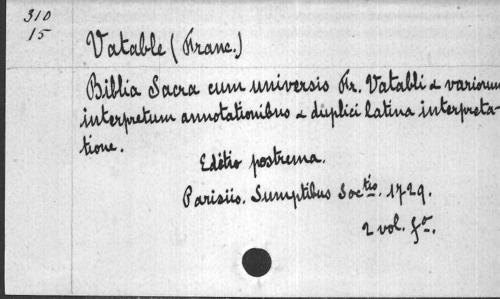 310
15
Vatable (Franc.)
Biblia Sacra cum universis Fr. Vatabli & variorum
interpretum annotationibus & duplici latina interpreta-
tione.
Editio postrema.
Parisiis. Sumptibus Soctis. 1729.
2 vol. fo.